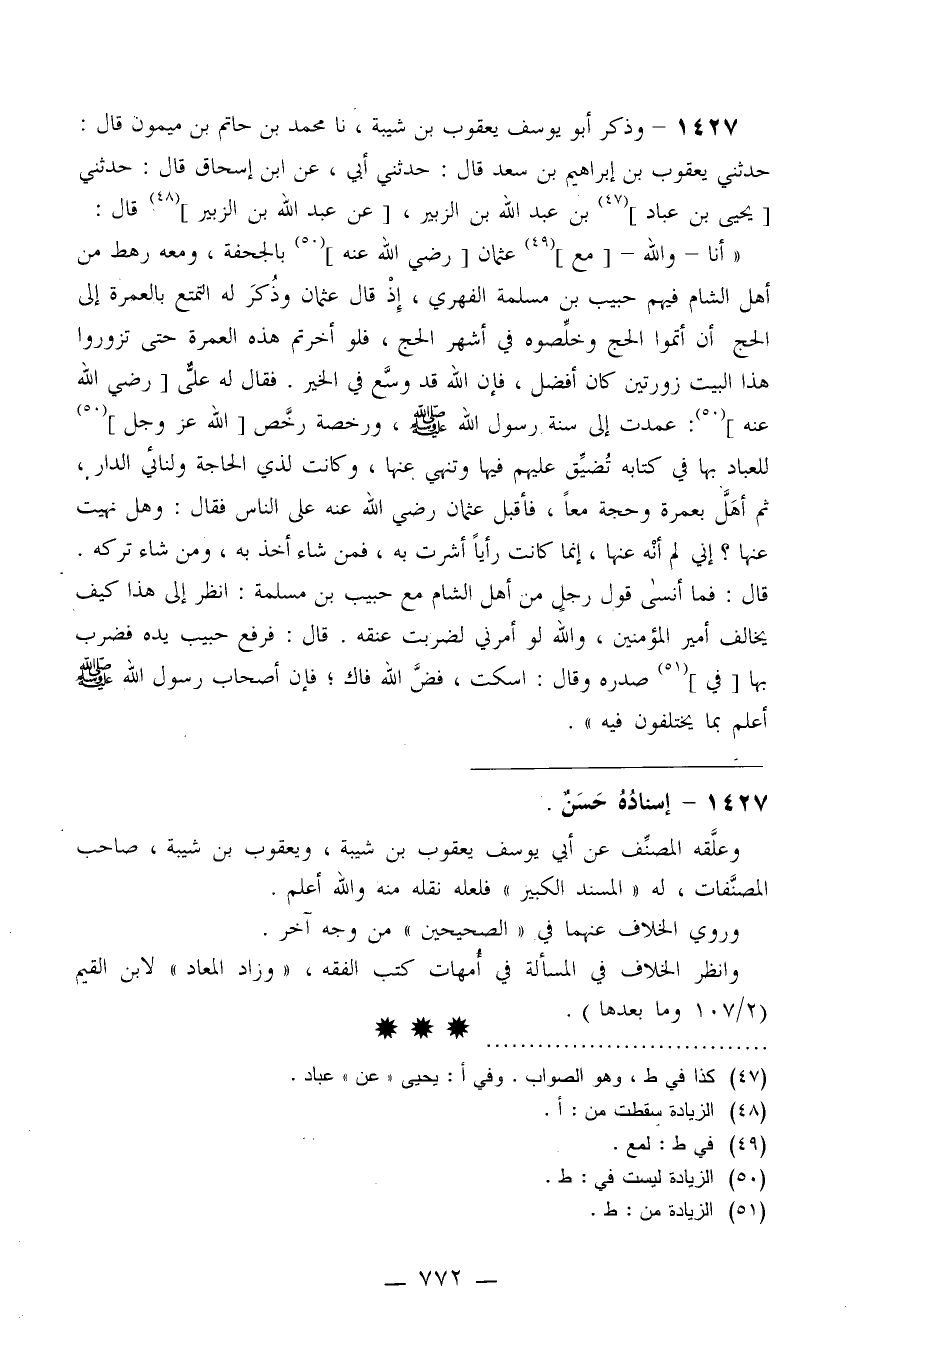 ١٤٢٧ – وذكر أبو يوسف يعقوب بن شيبة ، نا محمد بن حاتم بن ميمون قال :
حدثني يعقوب بن إبراهيم بن سعد قال : حدثني أبي ، عن ابن إسحاق قال : حدثني
[ يحيى بن عباد ](٤٧) بن عبد الله بن الزبير ، [ عن عبد الله بن الزبير ](٤٨) قال :
« أنا – والله – [ مع ](٤٩) عثمان [ رضي الله عنه ](٥٠) بالجحفة ، ومعه رهط من
أهل الشام فيهم حبيب بن مسلمة الفهري ، إذْ قال عثمان وذُكرَ له التمتع بالعمرة إلى
الحج أن أتموا الحج وخلِّصوه في أشهر الحج ، فلو أخرتم هذه العمرة حتى تزوروا
هذا البيت زورتين كان أفضل ، فإن الله قد وسَّع في الخير . فقال له عليٌّ [ رضي الله
عنه ](٥٠): عمدت إلى سنة رسول الله ﷺ ، ورخصة رخَّص [ الله عز وجل ](٥٠)
للعباد بها في كتابه تُضيِّق عليهم فيها وتنهى عنها ، وكانت لذي الحاجة ولنائي الدار ،
ثم أهَلَّ بعمرة وحجة معاً ، فأقبل عثمان رضي الله عنه على الناس فقال : وهل نهيت
عنها ؟ إني لم أنْه عنها ، إنما كانت رأياً أشرت به ، فمن شاء أخذ به ، ومن شاء تركه .
قال : فما أنسىٰ قول رجلٍ من أهل الشام مع حبيب بن مسلمة : انظر إلى هذا كيف
يخالف أمير المؤمنين ، والله لو أمرني لضربت عنقه . قال : فرفع حبيب يده فضرب
بها [ في ](٥١) صدره وقال : اسكت ، فضَّ الله فاك ؛ فإن أصحاب رسول الله ﷺ
أعلم بما يختلفون فيه » .
١٤٢٧ – إسنادُهُ حَسَنٌ .
وعلَّقه المصنِّف عن أبي يوسف يعقوب بن شيبة ، ويعقوب بن شيبة ، صاحب
المصنَّفات ، له « المسند الكبير » فلعله نقله منه والله أعلم .
وروي الخلاف عنهما في « الصحيحين » من وجه آخر .
وانظر الخلاف في المسألة في أُمهات كتب الفقه ، « وزاد المعاد » لابن القيم
(١٠٧/٢ وما بعدها ) .
(٤٧) كذا في ط ، وهو الصواب . وفي أ : يحيى « عن » عباد .
(٤٨) الزيادة سقطت من : أ .
(٤٩) في ط : لمع .
(٥٠) الزيادة ليست في : ط .
(٥١) الزيادة من : ط .
— ٧٧٢ —